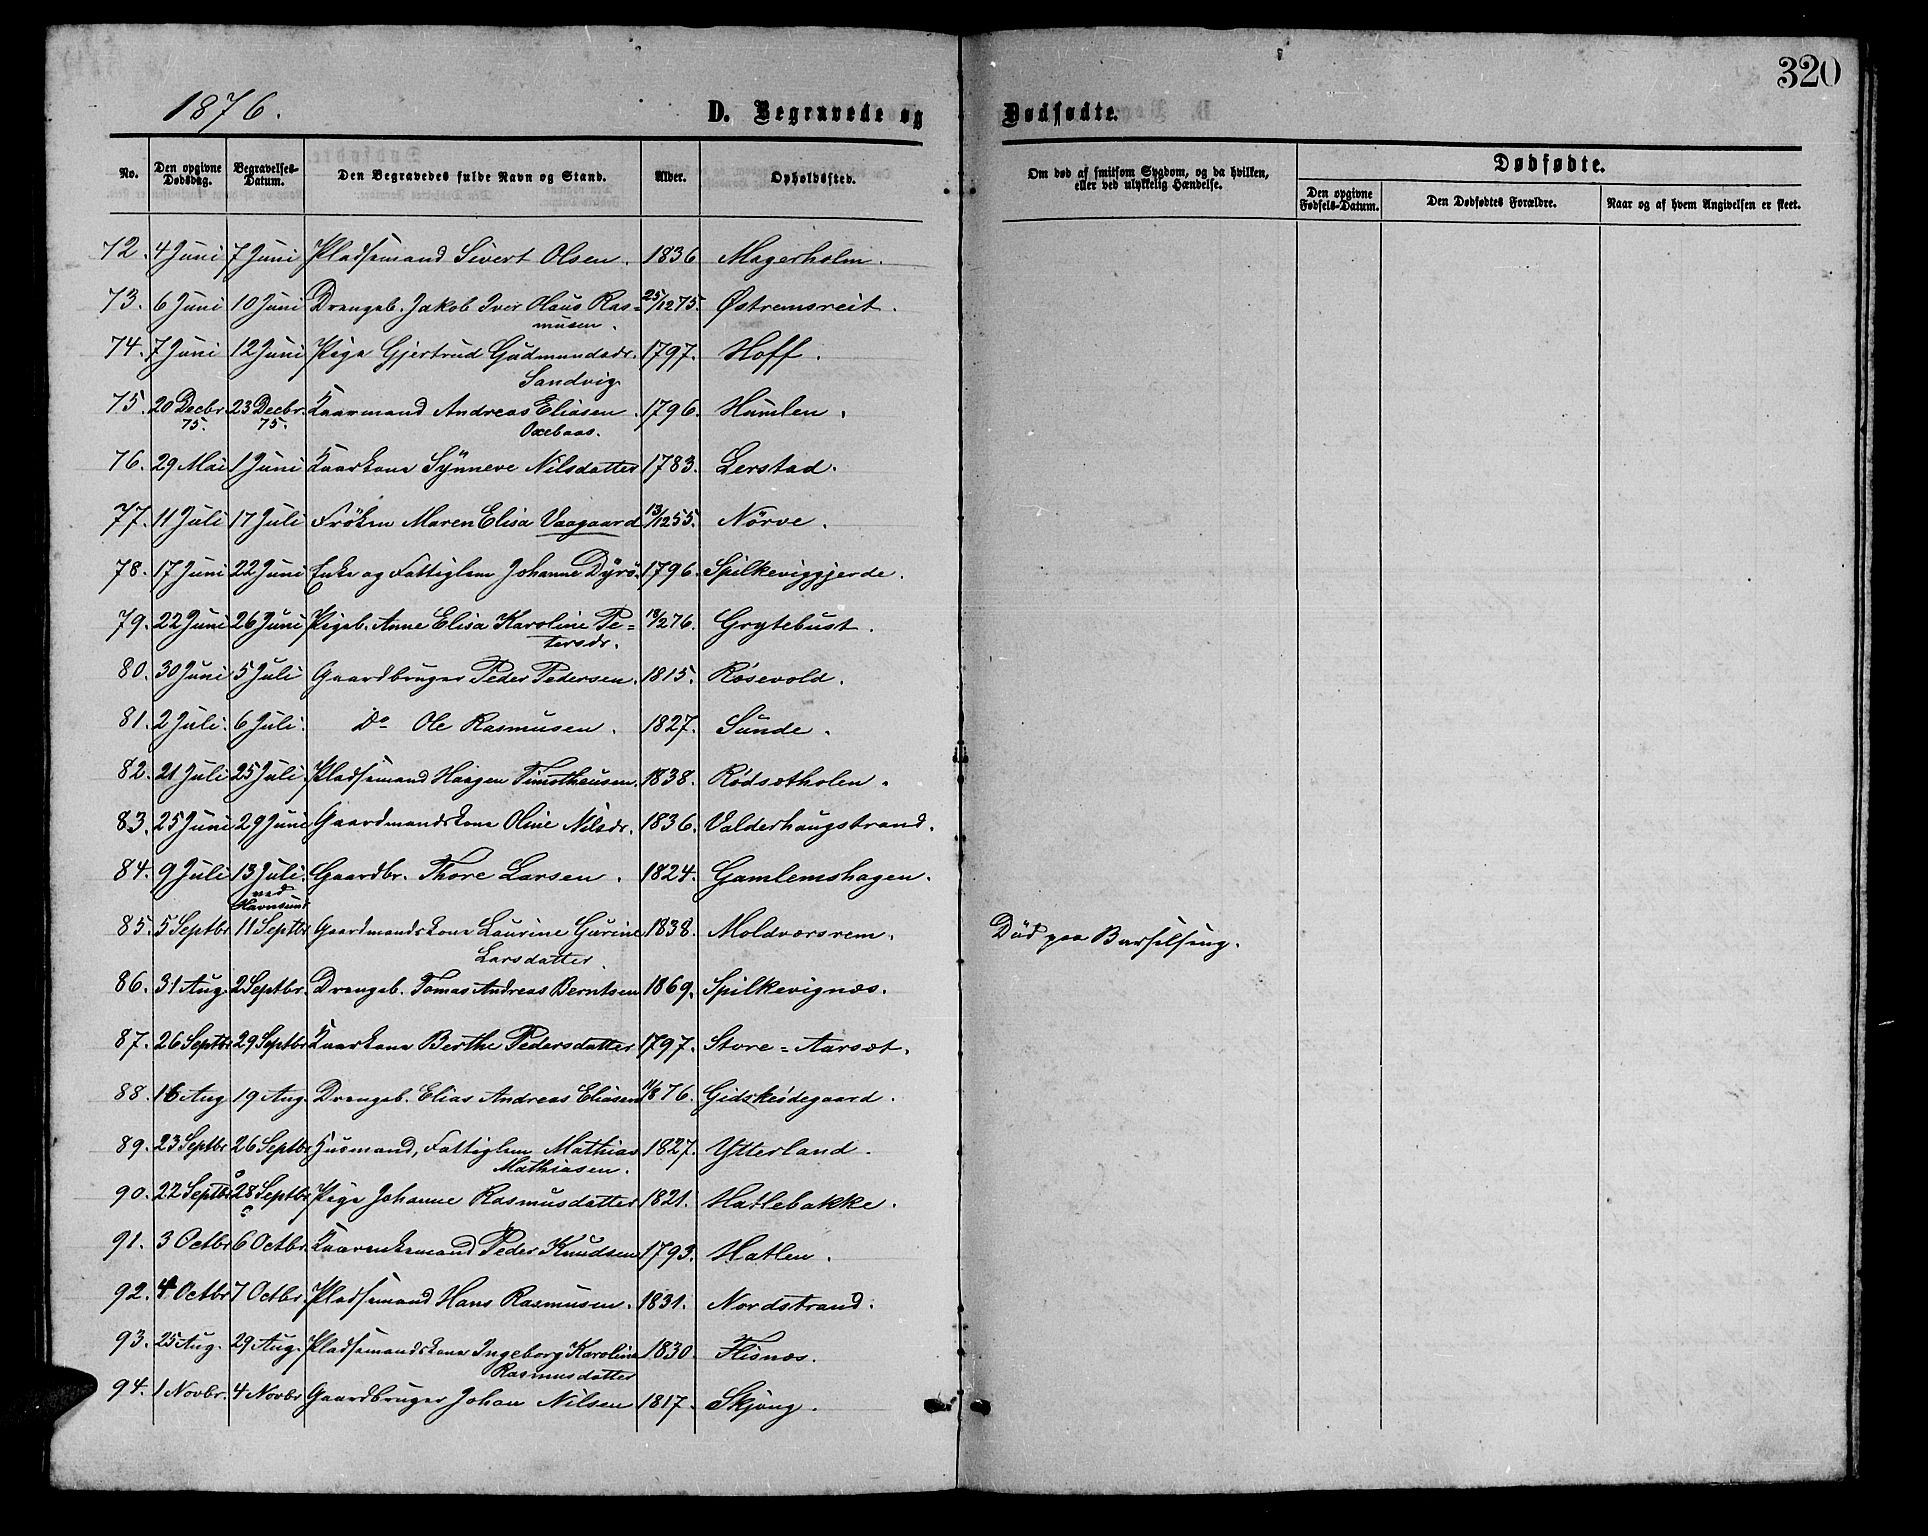 320
1876.
D. Begravede og Dødfødte.
No. Den opgivne Dødsdag. Begravelses-Datum. Den Begravedes fulde Navn og Stand. Alder. Opholdssted. Om død af smitsom Sygdom, og da hvilken, eller ved ulykkelig Hændelse. Dødfødte.
Den opgivne Fødsels-Datum. Den Dødfødtes Forældre. Naar og af hvem Angivelsen er skeet.
72. 4 Juni 7 Juni Pladsemand Sivert Olsen. 1836 Magerholm.
73. 6 Juni 10 Juni Drengeb. Jakob Iver Olaus Ras= 25/12 75. Østremsreit.
musen.
74. 7 Juni 12 Juni Pige Gjertrud Gudmundsdr. 1797. Hoff.
Sandvig
75. 20 Decbr. 23 Decbr. Kaarmand Andreas Eliasen 1796. Humlen.
75. 75. Oxebaas.
76. 29 Mai 1 Juni Kaarkone Synneve Nilsdatter 1783. Lerstad.
77. 11 Juli 17 Juli Frøken Maren Elisa Vaagaard 13/12 55. Nörve.
78. 17 Juni 22 Juni Enke og Fattiglem Johanne Dyrö. 1796. Spilkeviggjerde.
79. 22 Juni 26 Juni Pigeb. Anne Elisa Karoline Pe= 18/2 76. Grytebust.
tersdr.
80. 30 Juni 5 Juli Gaardbruger Peder Pedersen. 1815. Rósevold.
81. 2 Juli. 6 Juli. Do Ole Rasmusen. 1827. Sunde.
82. 21 Juli 25 Juli. Pladsemand Haagen Timotheusen. 1838. Rödsætholen.
83. 25 Juni 29 Juni Gaardmandskone Oline Nilsdr. 1836. Valderhaugstrand.
84. 9 Juli 13 Juli. Gaardbr. Thore Larsen. 1824. Gamlemshagen.
ved
Havnsund
85. 5 Septbr 11 Septbr Gaardmandskone Laurine Gurine 1838. Moldværsrem. Död paa Barselseng.
Larsdatter.
86. 31 Aug 2 Septbr. Drengeb. Tomas Andreas Berntsen 1869. Spilkevignæs.
87. 26 Septbr 29 Septbr Kaarkone Berthe Pedersdatter 1797. Store=Aarsæt.
88. 16 Aug 19 Aug. Drengeb. Elias Andreas Eliasen 11/8 76. Gidskeödegaard.
89. 23 Septbr 26 Septbr Husmand, Fattiglem Mathias 1827. Ytterland.
Mathiasen.
90. 22 Septbr 28 Septbr Pige Johanne Rasmusdatter 1821. Hatlebakke.
91. 3 Octbr 6 Octbr. Kaarenkemand Peder Knudsen 1793. Hatlen.
92. 4 Octbr 7 Octbr. Pladsemand Hans Rasmusen. 1831. Nordstrand.
93. 25 Aug. 29 Aug. Pladsemandskone Ingeborg Karoline 1830. Flisnæs.
Rasmusdatter
94. 1 Novbr. 4 Novbr Gaardbruger Johan Nilsen 1817. Skjong.